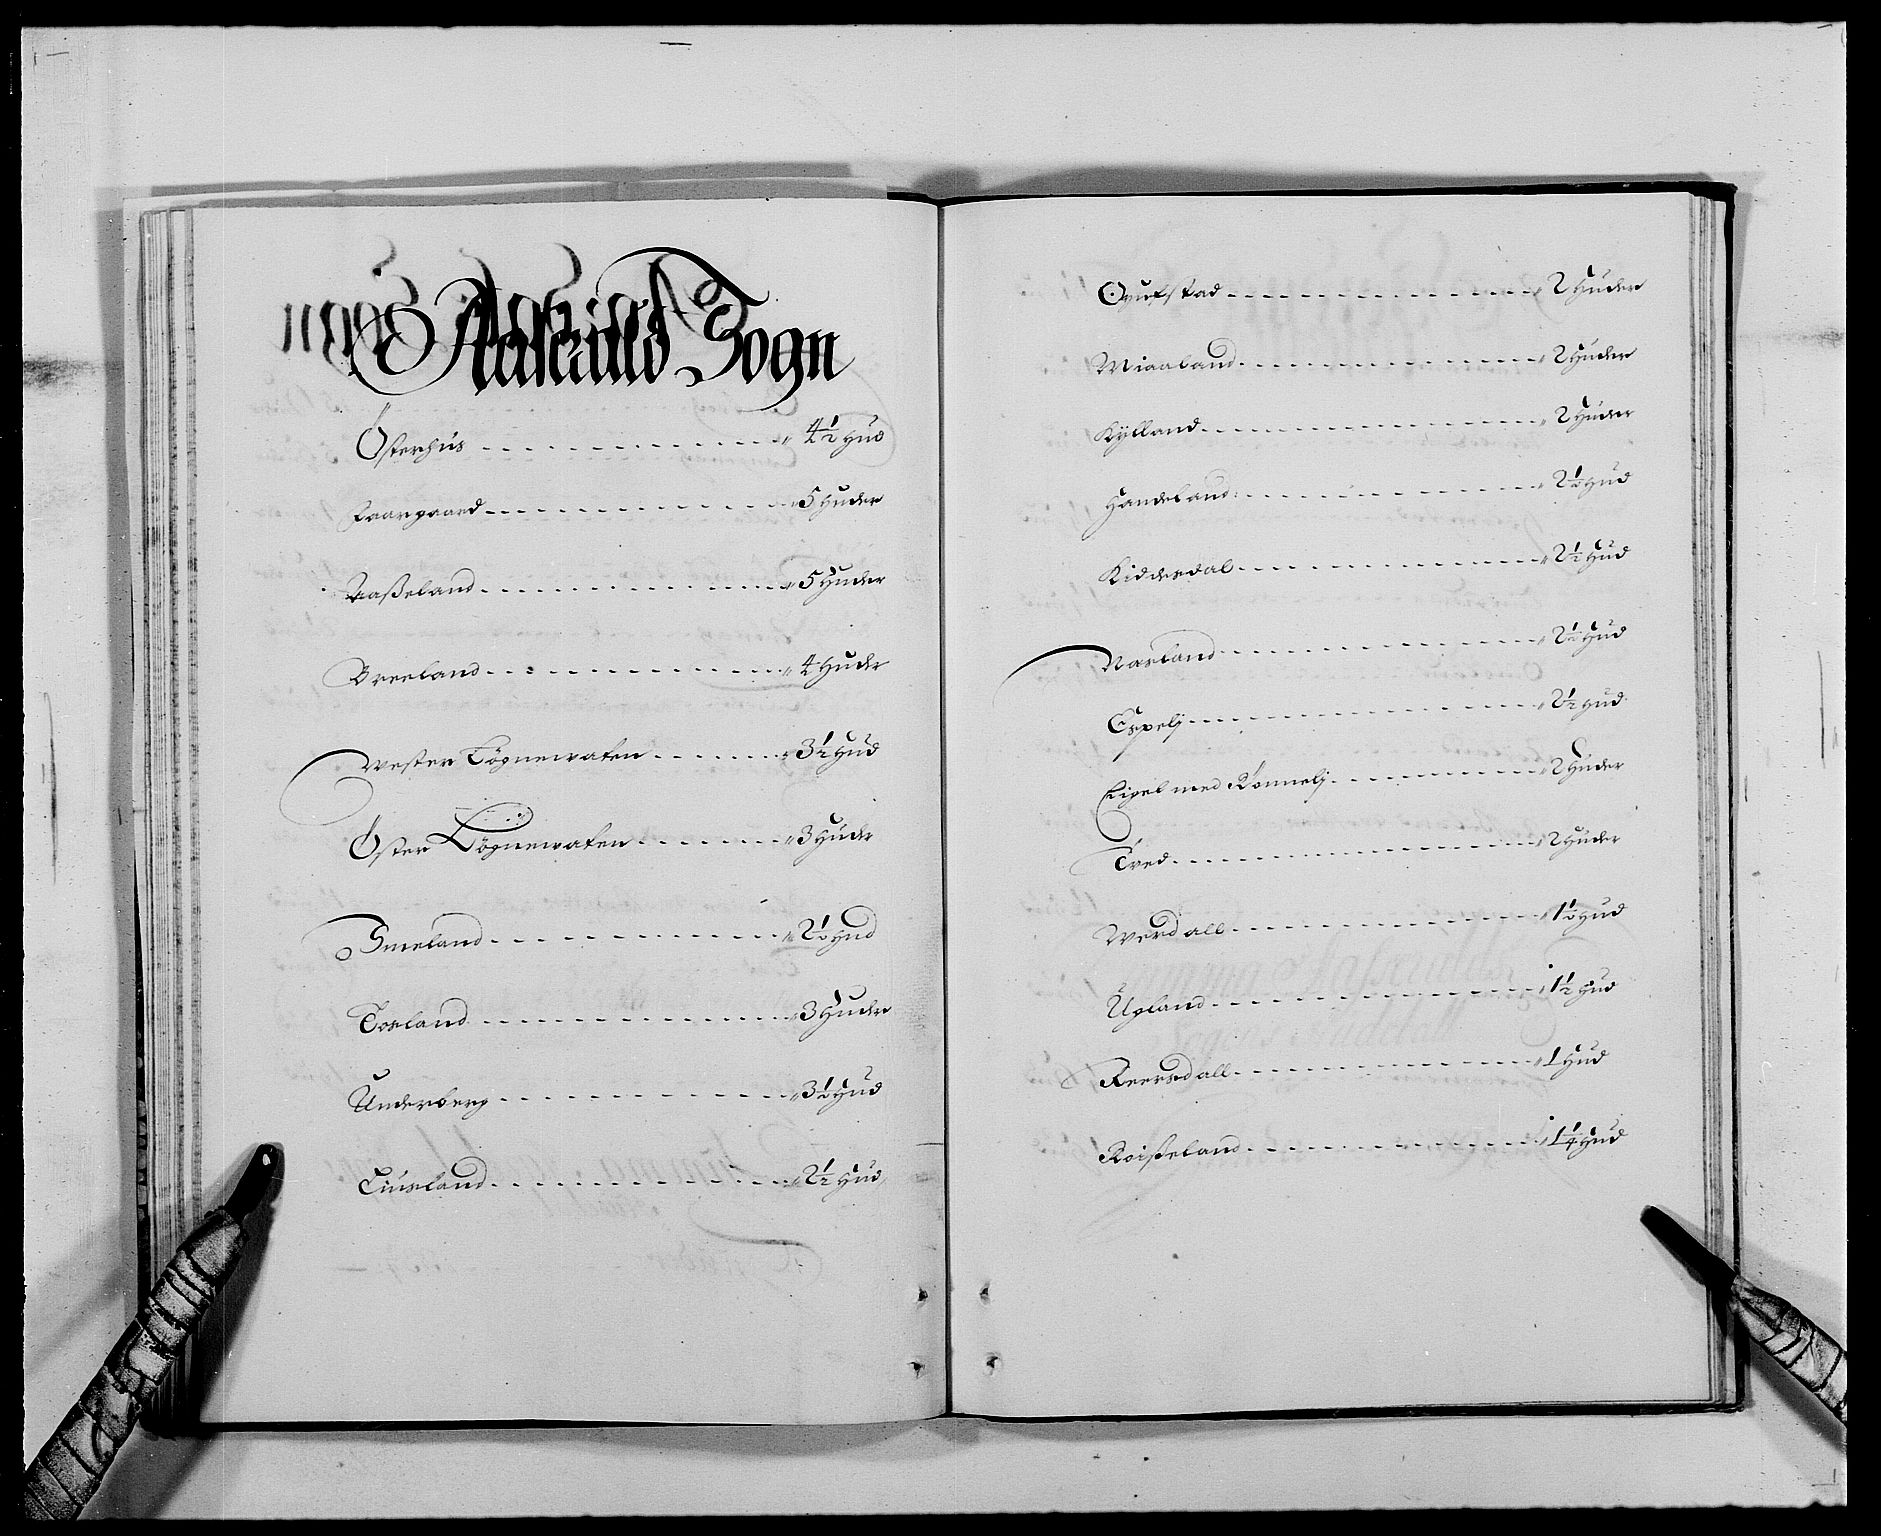 Aaseralds Sogn
Østerhus - - - - - - - - - - - - - - „ 4½ Hud
Faaregaard - - - - - - - - - - - - - - „ 5 Huder
Aaßeland - - - - - - - - - - - - - - „ 5 Huder
Breeland - - - - - - - - - - - - - - „ 4 Huder
Wester Løgnewaten - - - - - - - „ 3½ Hud
Øster Løgnewaten - - - - - - - „ 3 Huder
Smeland - - - - - - - - - - - - - - „ 2½ Hud
Torland - - - - - - - - - - - - - - „ 3 Huder
Underberg - - - - - - - - - - - - - - „ 3½ Hud
Liusland - - - - - - - - - - - - - - „ 2½ Hud
Ougstad - - - - - - - - - - - - - - „ 2 Huder
Miaaland - - - - - - - - - - - - - - „ 2 Huder
Kylland - - - - - - - - - - - - - - „ 2 Huder
Handeland - - - - - - - - - - - - - - „ 2½ Hud
Kiddesdal - - - - - - - - - - - - - - „ 2½ Hud
Naeland - - - - - - - - - - - - - - „ 2½ Hud
Espelj - - - - - - - - - - - - - - „ 2½ Hud
Eigel med Rønnelj - - - - - - - „ 2 Huder
Tved - - - - - - - - - - - - - - „ 2 Huder
Werdall - - - - - - - - - - - - - - „ 1½ Hud
Upland - - - - - - - - - - - - - - „ 1½ Hud
Reersdall - - - - - - - - - - - - - - „ 1 Hud
Roißeland - - - - - - - - - - - - - - „ 1¼ Hud